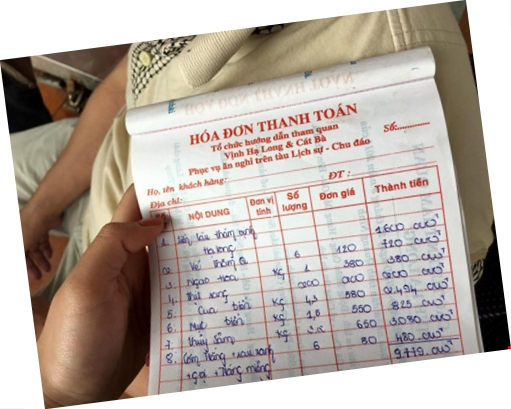 HÓA ĐƠN THANH TOÁN
Tổ chức hướng dẫn tham quan
Vịnh Hạ Long & Cát Bà
Phục vụ ăn nghỉ trên tàu Lịch sự - Chu đáo
Số:.............
Họ, tên khách hàng:
Địa chỉ: ĐT :
NỘI DUNG Đơn vị tính Số lượng Đơn giá Thành tiền
1. tiền tàu thăm vịnh 1.600.000đ
Hạ long
2. Vé thăm 6 120 720.000đ
3. Ngao hoa Kg 1 380 380.000đ
4. Thịt rang 200 200.000đ
5. Cua biển Kg 4,3 580 2.494.000đ
6. Mực biển Kg 1,5 550 825.000đ
7. 650 3.080.000đ
8. Cơm trắng + rau xanh 6 80 480.000đ
+ tráng miệng 9.779.000đ